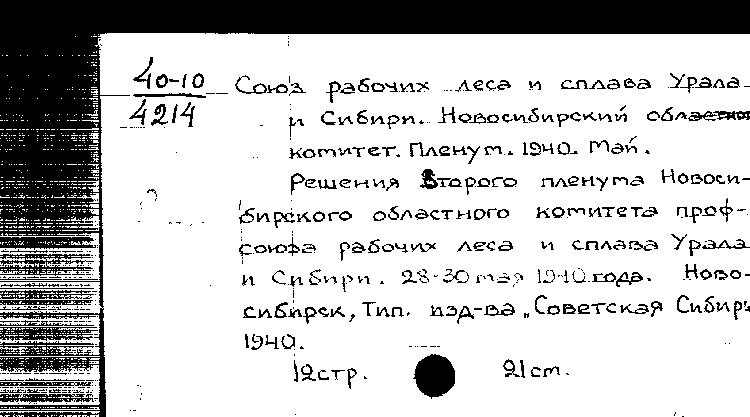 40-10
4214
Союз рабочих леса и сплава Урала
и Сибири. Новосибирский областной
комитет. Пленум. 1940. Май.
Решения второго пленума Новоси-
бирского областного комитета проф-
союза рабочих леса и сплава Урала
и Сибири. 28-30 мая 1940 года. Ново-
сибирск, Тип. изд-ва „Советская Сибирь
1940.
12 стр. 21 cm.